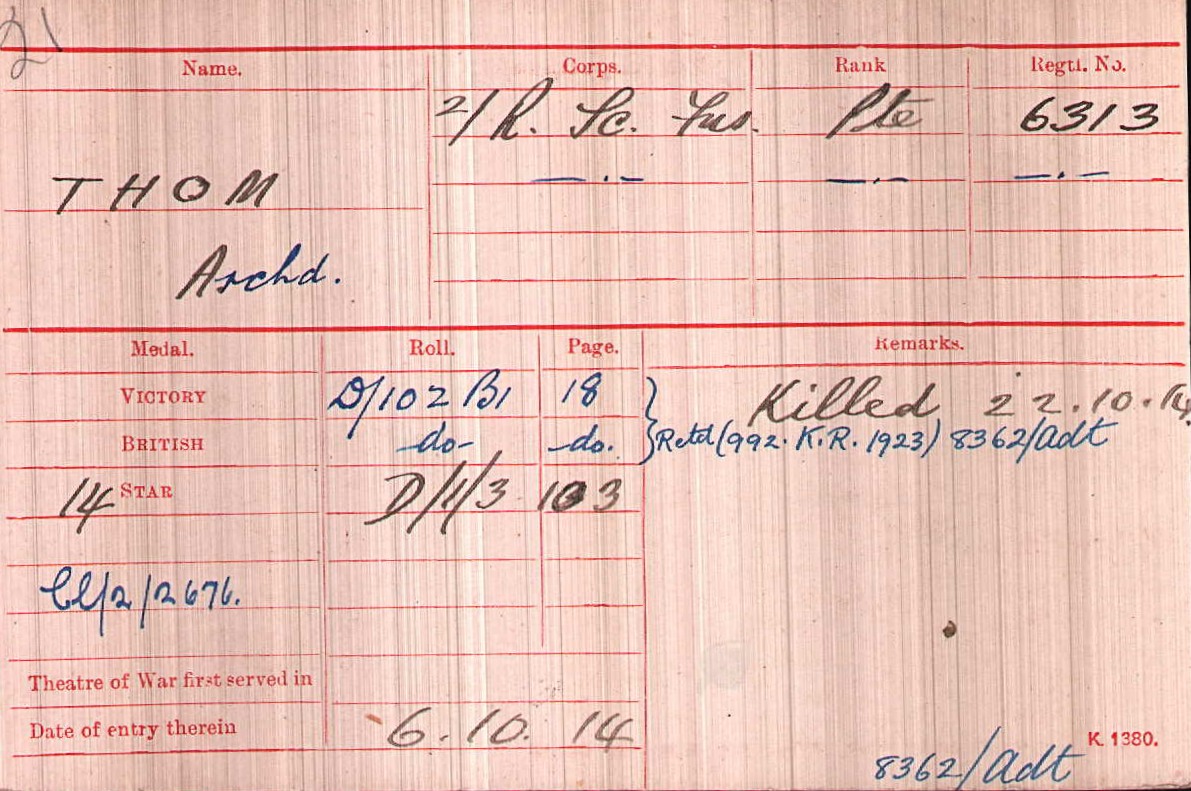 21
Name. Corps. Rank Regtl. No.
2/R. Sc. Fus. Pte 6313
THOM —.— —.— —.—
Archd.
Medal. Roll. Page. Remarks.
VICTORY D/102 B1 18 } Killed 22.10.14.
BRITISH -do- -do. } Retd (992. K.R. 1923) 8362/Adt
14 STAR D/1/3 103
Cl/2/2676.
Theatre of War first served in
Date of entry therein 6.10.14
K. 1380.
8362/Adt